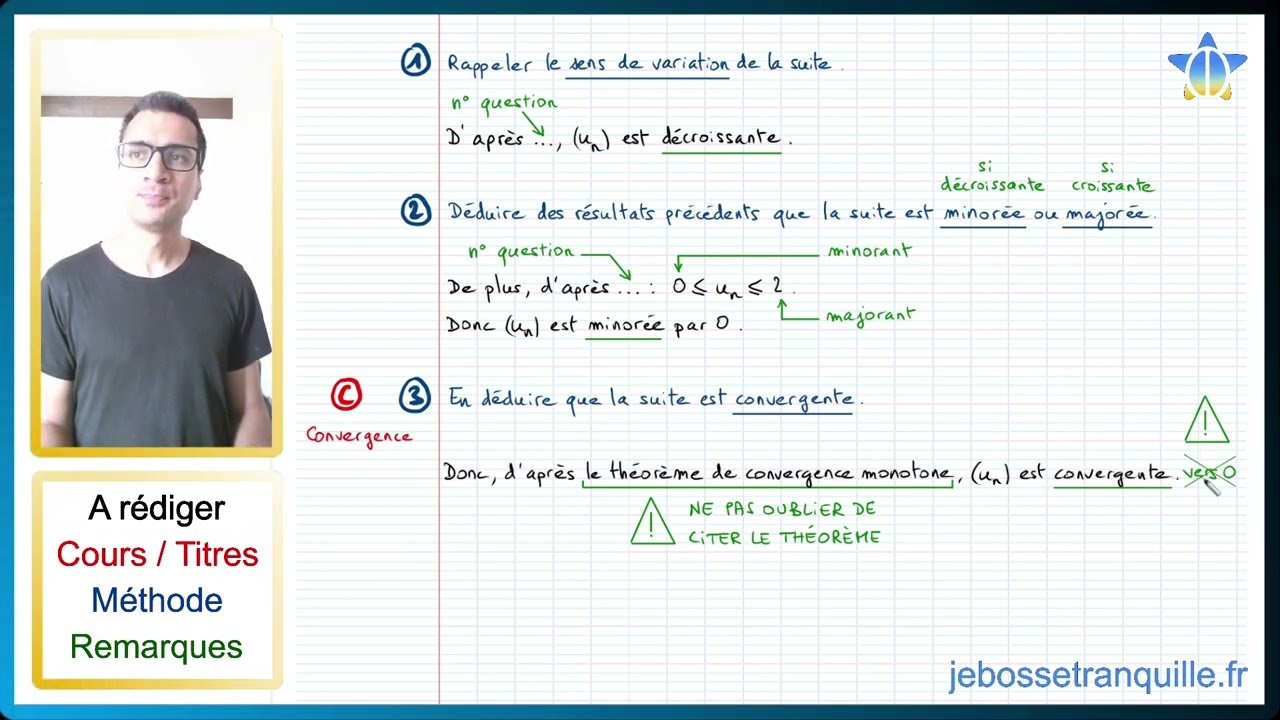 ① Rappeler le sens de variation de la suite.
n° question
D'après ..., (uₙ) est décroissante.
si décroissante
si croissante
② Déduire des résultats précédents que la suite est minorée ou majorée.
n° question
minorant
De plus, d'après ... : 0 ⩽ uₙ ⩽ 2.
majorant
Donc (uₙ) est minorée par 0.
C
Convergence
③ En déduire que la suite est convergente.
!
Donc, d'après le théorème de convergence monotone, (uₙ) est convergente. vers 0
!
NE PAS OUBLIER DE
CITER LE THÉORÈME
A rédiger
Cours / Titres
Méthode
Remarques
jebossetranquille.fr